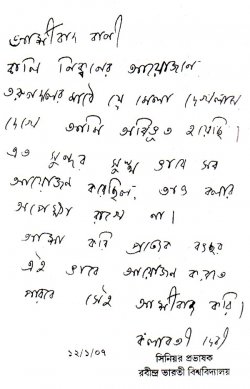 আশীর্বাদ বাণী
আয়োজনে
মাঠে যে মেলা দেখলাম
দেখে আমি অভিভূত হয়েছি।
এত সুন্দর সুক্ষ্ম ভাবে সব
আয়োজন করেছিল, তাও বলার
অপেক্ষা রাখে না।
আশা করি প্রত্যেক বৎসর
এই ভাবে আয়োজন করতে
পারবে সেই আশীর্বাদ করি।
কলাবতী দেবী
১২/১/০৭
সিনিয়র প্রভাষক
রবীন্দ্র ভারতী বিশ্ববিদ্যালয়